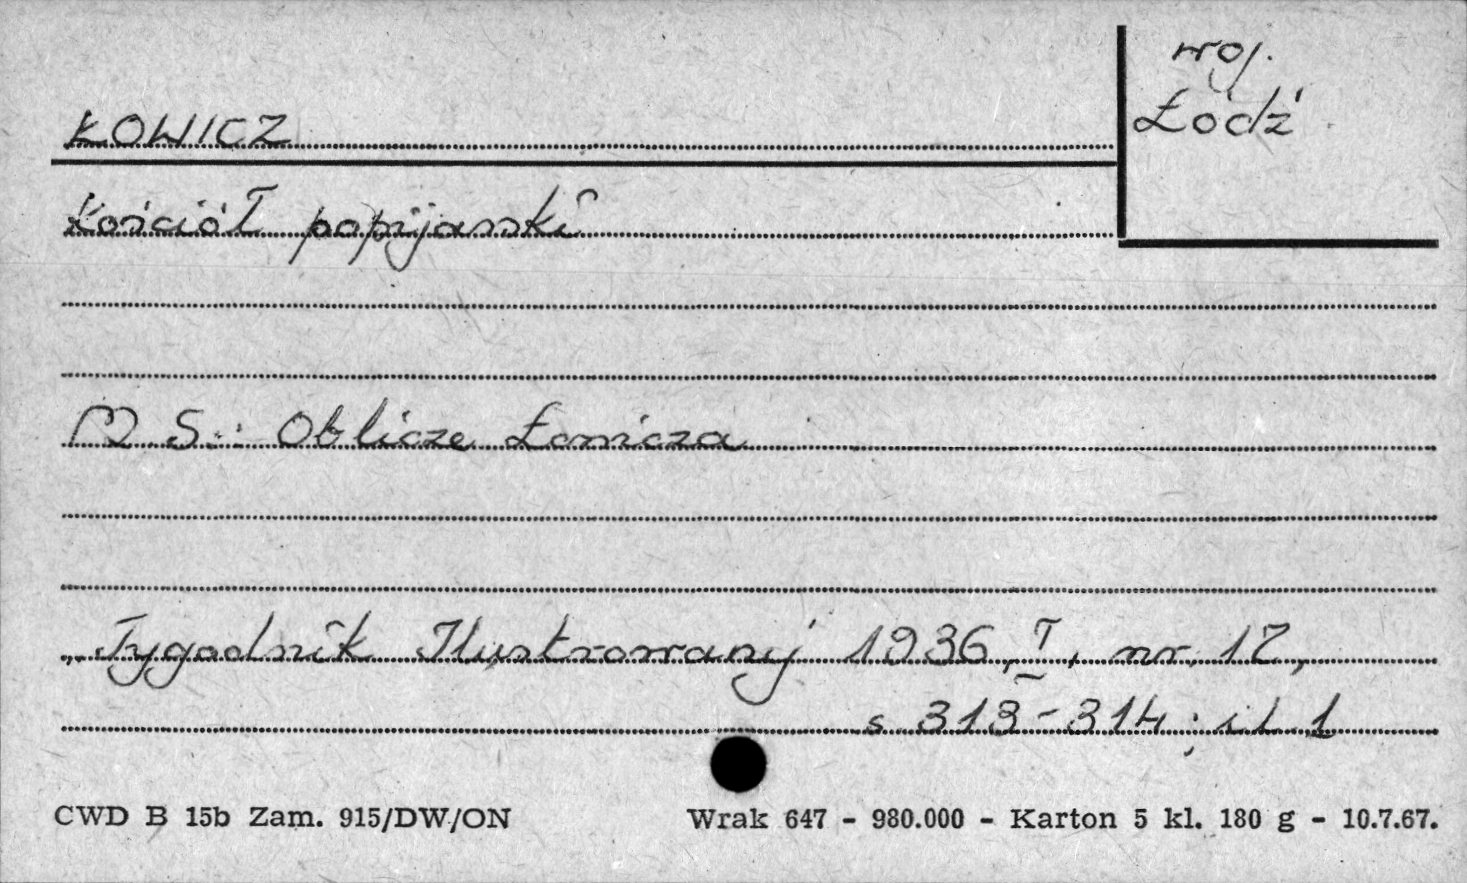 woj.
Łódź
ŁOWICZ
Kościół popijarski
M S.: Oblicze Łowicza
„Tygodnik Ilustrowany 1936, I, nr. 17,
s 313-314; il. 1
CWD B 15b Zam. 915/DW/ON Wrak 647 - 980.000 - Karton 5 kl. 180 g - 10.7.67.